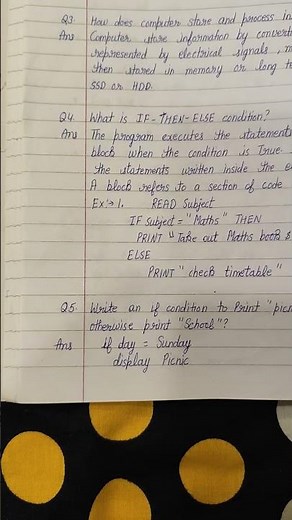 Q3. How does computer store and process in
Ans Computer store information by convert
represented by electrical signals,
then stored in memory or long te
SSD or HDD.
Q4. What is IF-THEN-ELSE condition?
Ans The program executes the statement
block when the condition is True
the statements written inside the e
A block refers to a section of code
Ex:→ 1. READ Subject
IF Subject = "Maths" THEN
PRINT "Take out Maths book &
ELSE
PRINT "check timetable"
Q5. Write an if condition to Print "picn
otherwise print "School"?
Ans if day = Sunday
display Picnic